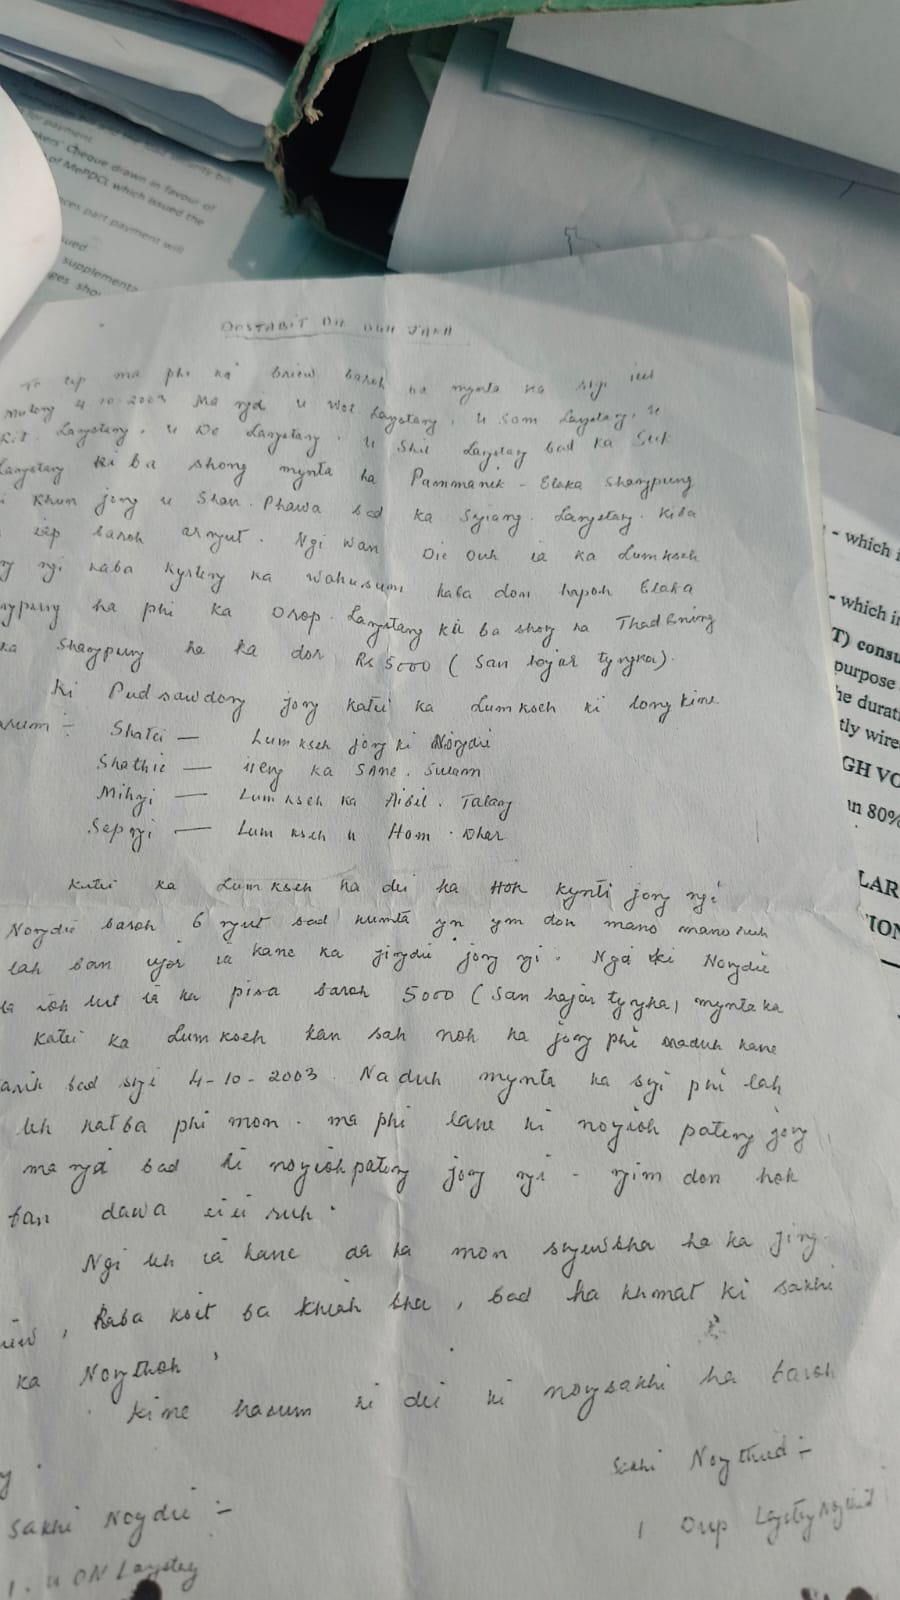 for payment
kers' Cheque drawn in favour of
of MePDCL which issued the
nces part payment will
sued
supplementa
ges sho
- which i
- which in
T) consu
purpose
he durati
tly wire
GH VO
in 80%
LAR
ION
DOSTABIT DIE DUH JAKA
ma phi ka briew baroh na mynta ka sngi
4-10-2003 Ma ngi u Wot Langstang, u Som Langstang, u
Langstang, u De Langstang, u Shil Langstang bad ka Suk
Langstang ki ba shong mynta ha Pammanik - Elaka Shangpung
i khun jong u Shan. Phawa bad ka Syiang. Langstang. Kiba
iap baroh arngut. Ngi wan Die Duh ia ka Lumkseh
ng ngi kaba kyrteng ka Wahusum kaba don hapoh Elaka
ngpung ha phi ka Orop. Langstang kii ba shong ha Thadbning
ka Shangpung ha ka dor Rs 5000 (San hajar tyngka).
Ki Pud sawdong jong katei ka Lumkseh ki long kine
harum :-
Shatei — Lumkseh jong ki Nongdie
Shathie — ïïeng ka SANE. Suram
Mihngi — Lumkseh ka Aibil. Talang
Sepngi — Lum kseh u Hom. Dhar
Katei ka Lumkseh ka dei ka Hok kynti jong ngi
Nongdie baroh 6 ngut bad kumta yn ym don mano mano ruh
lah ban ujor ia kane ka jingdie jong ngi. Ngi ki Nongdie
la ioh lut ia ka pisa baroh 5000 (San hajar tyngka) mynta ka
katei ka Lumkseh kan sah noh ka jong phi naduh kane
tarik bad sngi 4-10-2003. Naduh mynta ka sngi phi lah
leh katba phi mon. ma phi lane ki nongioh pateng jong
ma ngi bad ki nongioh pateng jong ngi - ngim don hok
ban dawa eiei ruh.
Ngi leh ia kane da ka mon sngewbha ha ka jing-
, kaba koit ba khiah bha, bad ha khmat ki sakhi
ka Nongthoh
kine harum ki dei ki nongsakhi ha baroh
Sakhi Nongthied :-
1 Orup Langstang
Sakhi Nongdie :-
1. u ON Langstang